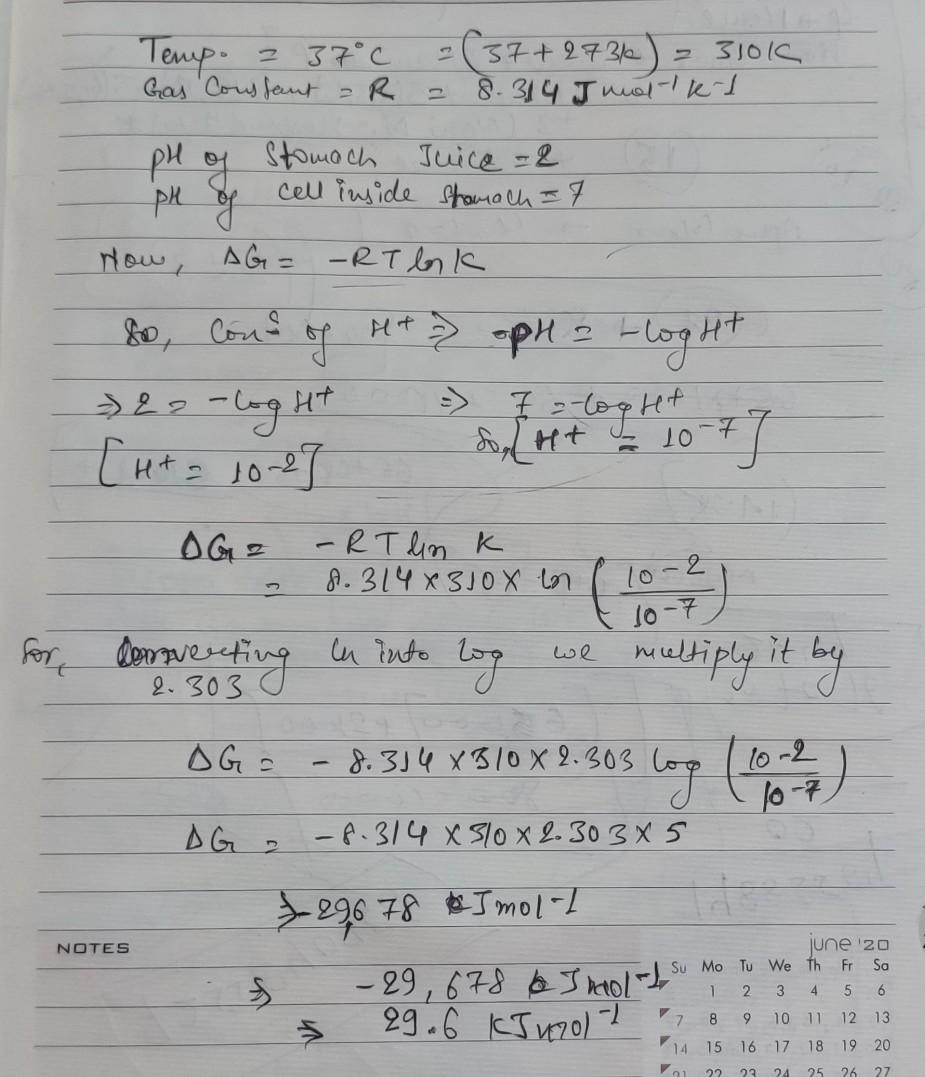 Temp. = 37°C = (37+273k) = 310K
Gas Constant = R = 8.314 J mol-1 K-1
pH of Stomach Juice = 2
pH of cell inside Stomach = 7
Now, ΔG = -RT ln K
So, Conc of H+ ⇒ pH = -log H+
⇒ 2 = -log H+ ⇒ 7 = -log H+
[H+ = 10-2] So, [H+ = 10-7]
ΔG = -RT ln K
= 8.314 × 310 × ln (10-2 / 10-7)
For, Converting ln into log we multiply it by
2.303
ΔG = - 8.314 × 310 × 2.303 log (10-2 / 10-7)
ΔG = -8.314 × 310 × 2.303 × 5
⇒ -29,678 J mol-1
NOTES
⇒ -29,678 J mol-1
⇒ 29.6 KJ mol-1
june '20
Su Mo Tu We Th Fr Sa
1 2 3 4 5 6
7 8 9 10 11 12 13
14 15 16 17 18 19 20
21 22 23 24 25 26 27